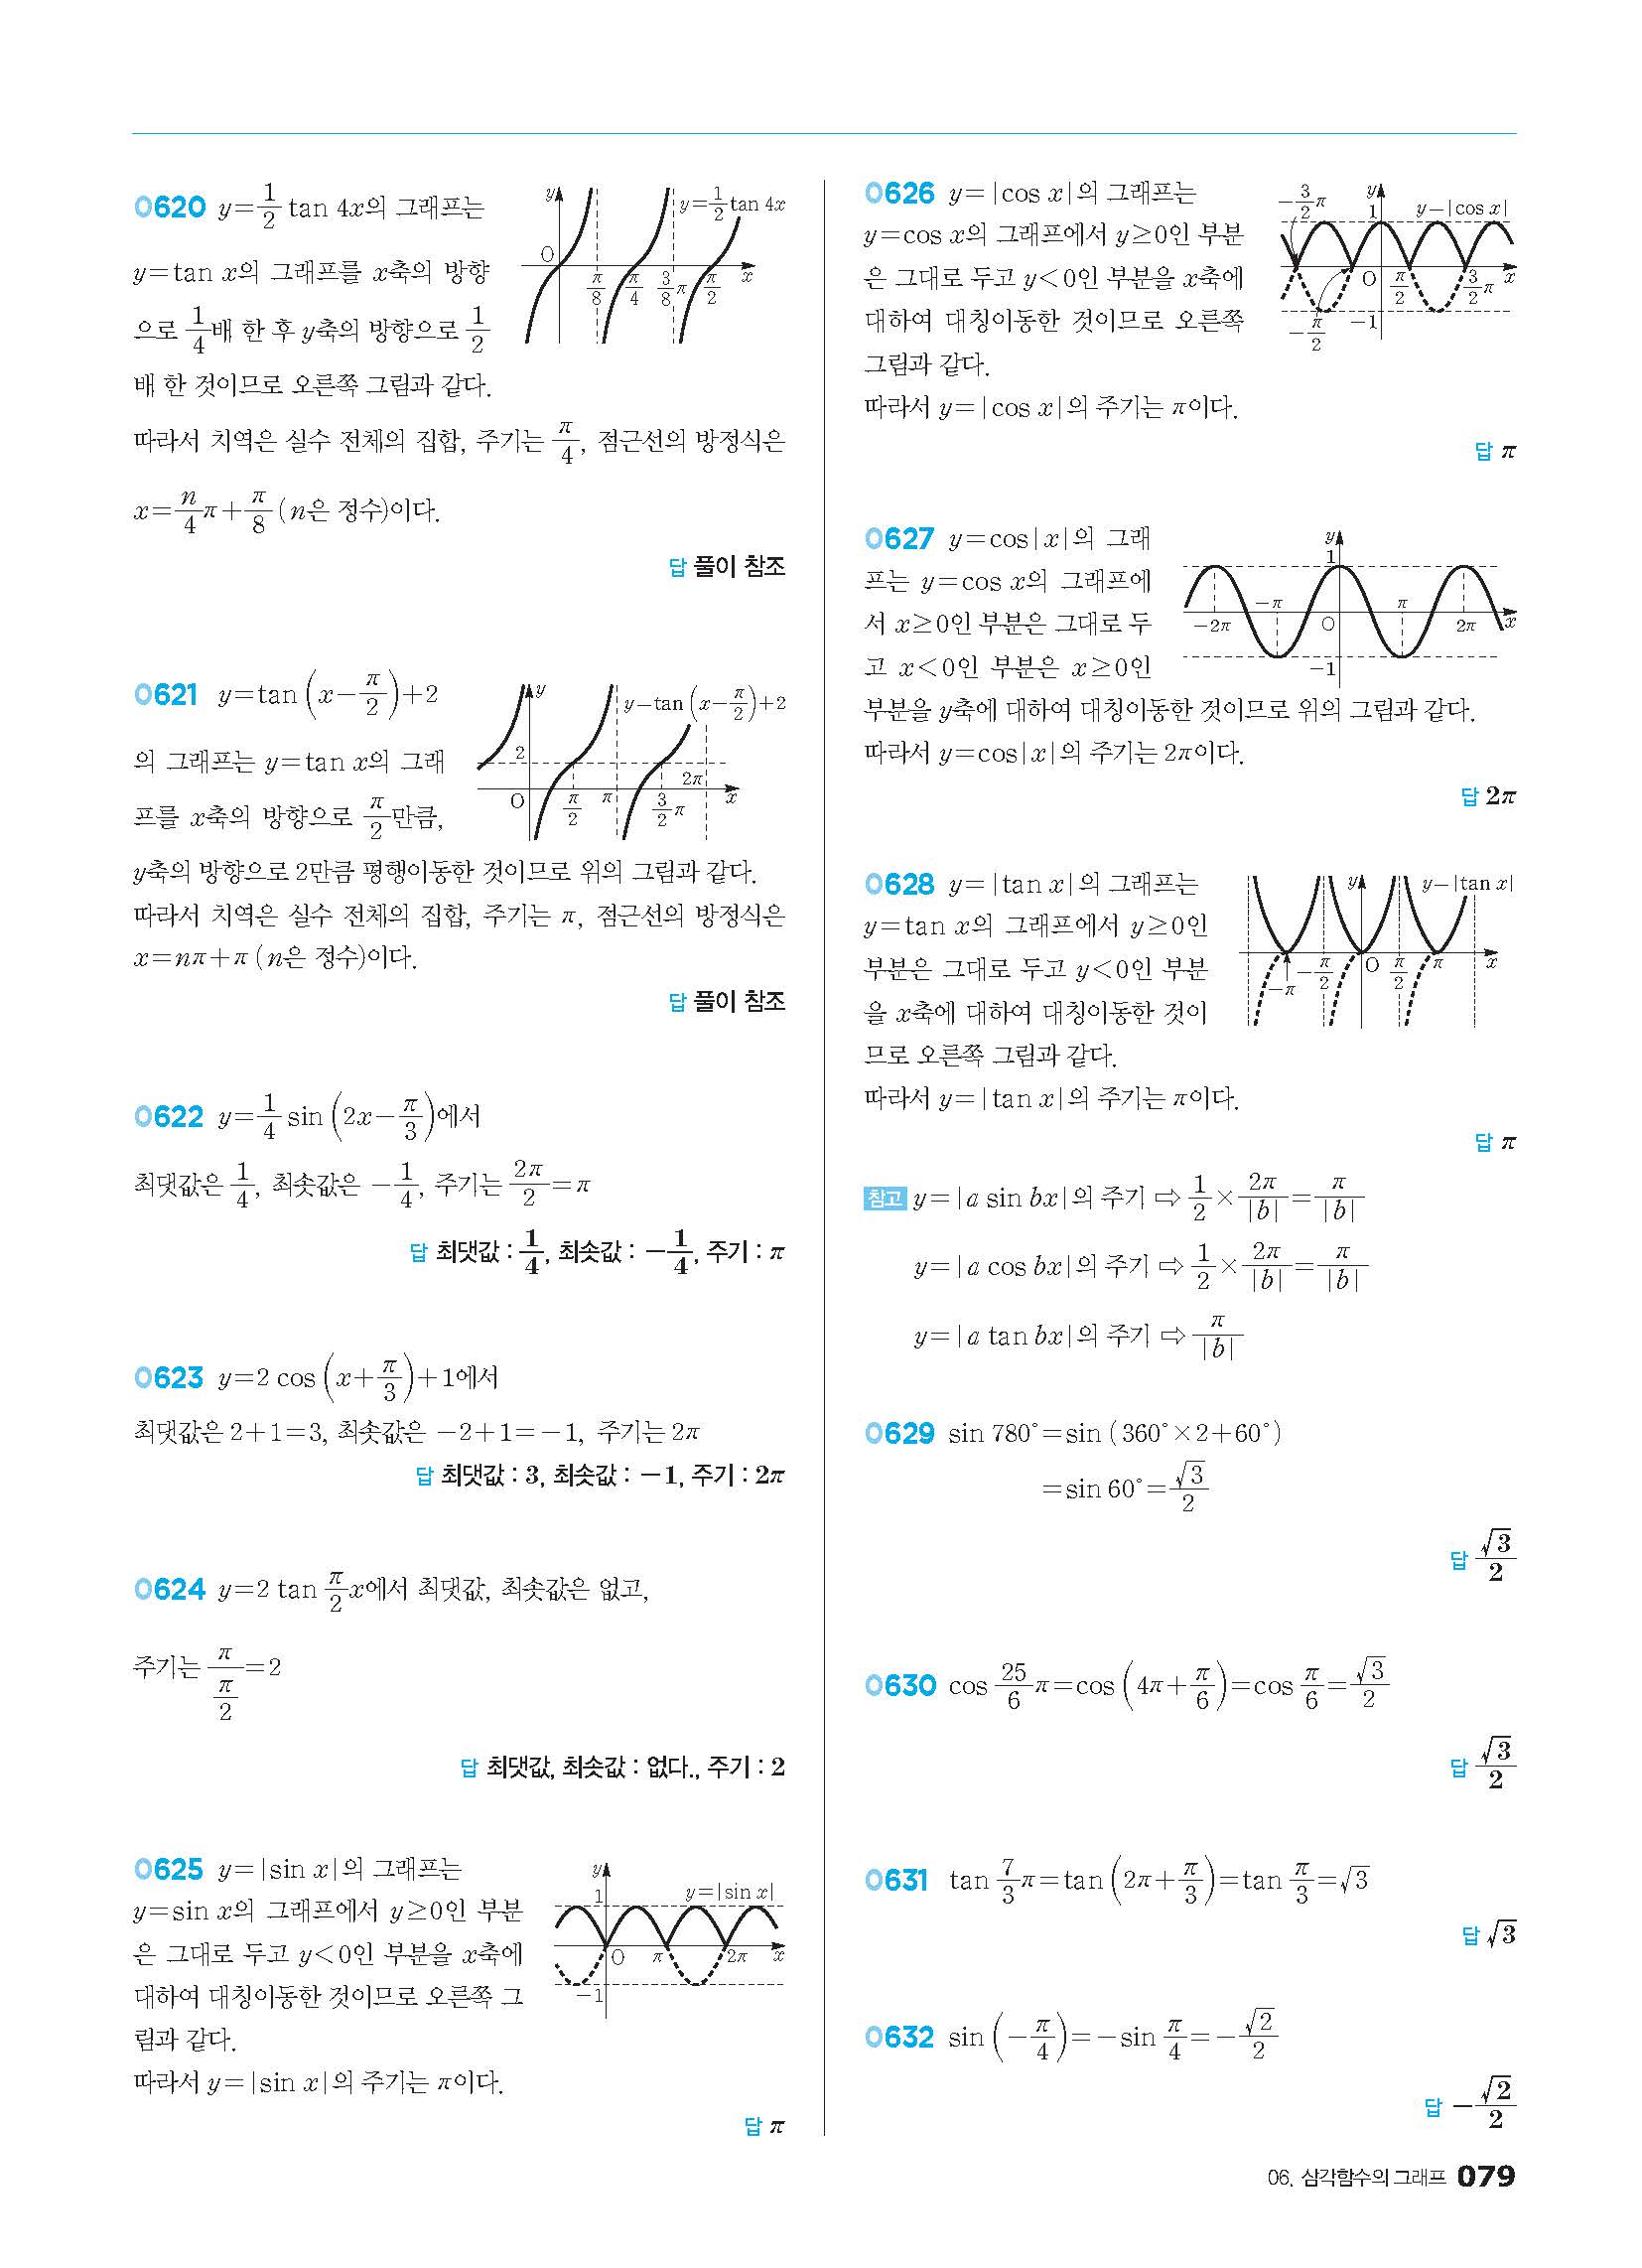 0620 y=1/2 tan 4x의 그래프는
y=tan x의 그래프를 x축의 방향
으로 1/4배 한 후 y축의 방향으로 1/2
배 한 것이므로 오른쪽 그림과 같다.
y
y=1/2 tan 4x
O
π/8 π/4 3/8π π/2 x
따라서 치역은 실수 전체의 집합, 주기는 π/4, 점근선의 방정식은
x=n/4π+π/8 (n은 정수)이다.
답 풀이 참조
0621 y=tan(x-π/2)+2
의 그래프는 y=tan x의 그래
프를 x축의 방향으로 π/2만큼,
y
y=tan(x-π/2)+2
2
2π
O π/2 π 3/2π x
y축의 방향으로 2만큼 평행이동한 것이므로 위의 그림과 같다.
따라서 치역은 실수 전체의 집합, 주기는 π, 점근선의 방정식은
x=nπ+π (n은 정수)이다.
답 풀이 참조
0622 y=1/4 sin(2x-π/3)에서
최댓값은 1/4, 최솟값은 -1/4, 주기는 2π/2=π
답 최댓값 : 1/4, 최솟값 : -1/4, 주기 : π
0623 y=2 cos(x+π/3)+1에서
최댓값은 2+1=3, 최솟값은 -2+1=-1, 주기는 2π
답 최댓값 : 3, 최솟값 : -1, 주기 : 2π
0624 y=2 tan π/2 x에서 최댓값, 최솟값은 없고,
주기는 π/(π/2)=2
답 최댓값, 최솟값 : 없다., 주기 : 2
0625 y=|sin x|의 그래프는
y=sin x의 그래프에서 y≥0인 부분
은 그대로 두고 y<0인 부분을 x축에
대하여 대칭이동한 것이므로 오른쪽 그
림과 같다.
y
1 y=|sin x|
O π 2π x
-1
따라서 y=|sin x|의 주기는 π이다.
답 π
0626 y=|cos x|의 그래프는
y=cos x의 그래프에서 y≥0인 부분
은 그대로 두고 y<0인 부분을 x축에
대하여 대칭이동한 것이므로 오른쪽
그림과 같다.
-3/2π y
1 y=|cos x|
O π/2 3/2π x
-π/2 -1
따라서 y=|cos x|의 주기는 π이다.
답 π
0627 y=cos|x|의 그래
프는 y=cos x의 그래프에
서 x≥0인 부분은 그대로 두
고 x<0인 부분은 x≥0인
y
1
-π π
-2π O 2π x
-1
부분을 y축에 대하여 대칭이동한 것이므로 위의 그림과 같다.
따라서 y=cos|x|의 주기는 2π이다.
답 2π
0628 y=|tan x|의 그래프는
y=tan x의 그래프에서 y≥0인
부분은 그대로 두고 y<0인 부분
을 x축에 대하여 대칭이동한 것이
므로 오른쪽 그림과 같다.
y y=|tan x|
-π -π/2 O π/2 π x
따라서 y=|tan x|의 주기는 π이다.
답 π
참고 y=|a sin bx|의 주기 ⇨ 1/2×2π/|b|=π/|b|
y=|a cos bx|의 주기 ⇨ 1/2×2π/|b|=π/|b|
y=|a tan bx|의 주기 ⇨ π/|b|
0629 sin 780°=sin (360°×2+60°)
=sin 60°=√3/2
답 √3/2
0630 cos 25/6 π=cos(4π+π/6)=cos π/6=√3/2
답 √3/2
0631 tan 7/3 π=tan(2π+π/3)=tan π/3=√3
답 √3
0632 sin(-π/4)=-sin π/4=-√2/2
답 -√2/2
06. 삼각함수의 그래프 079